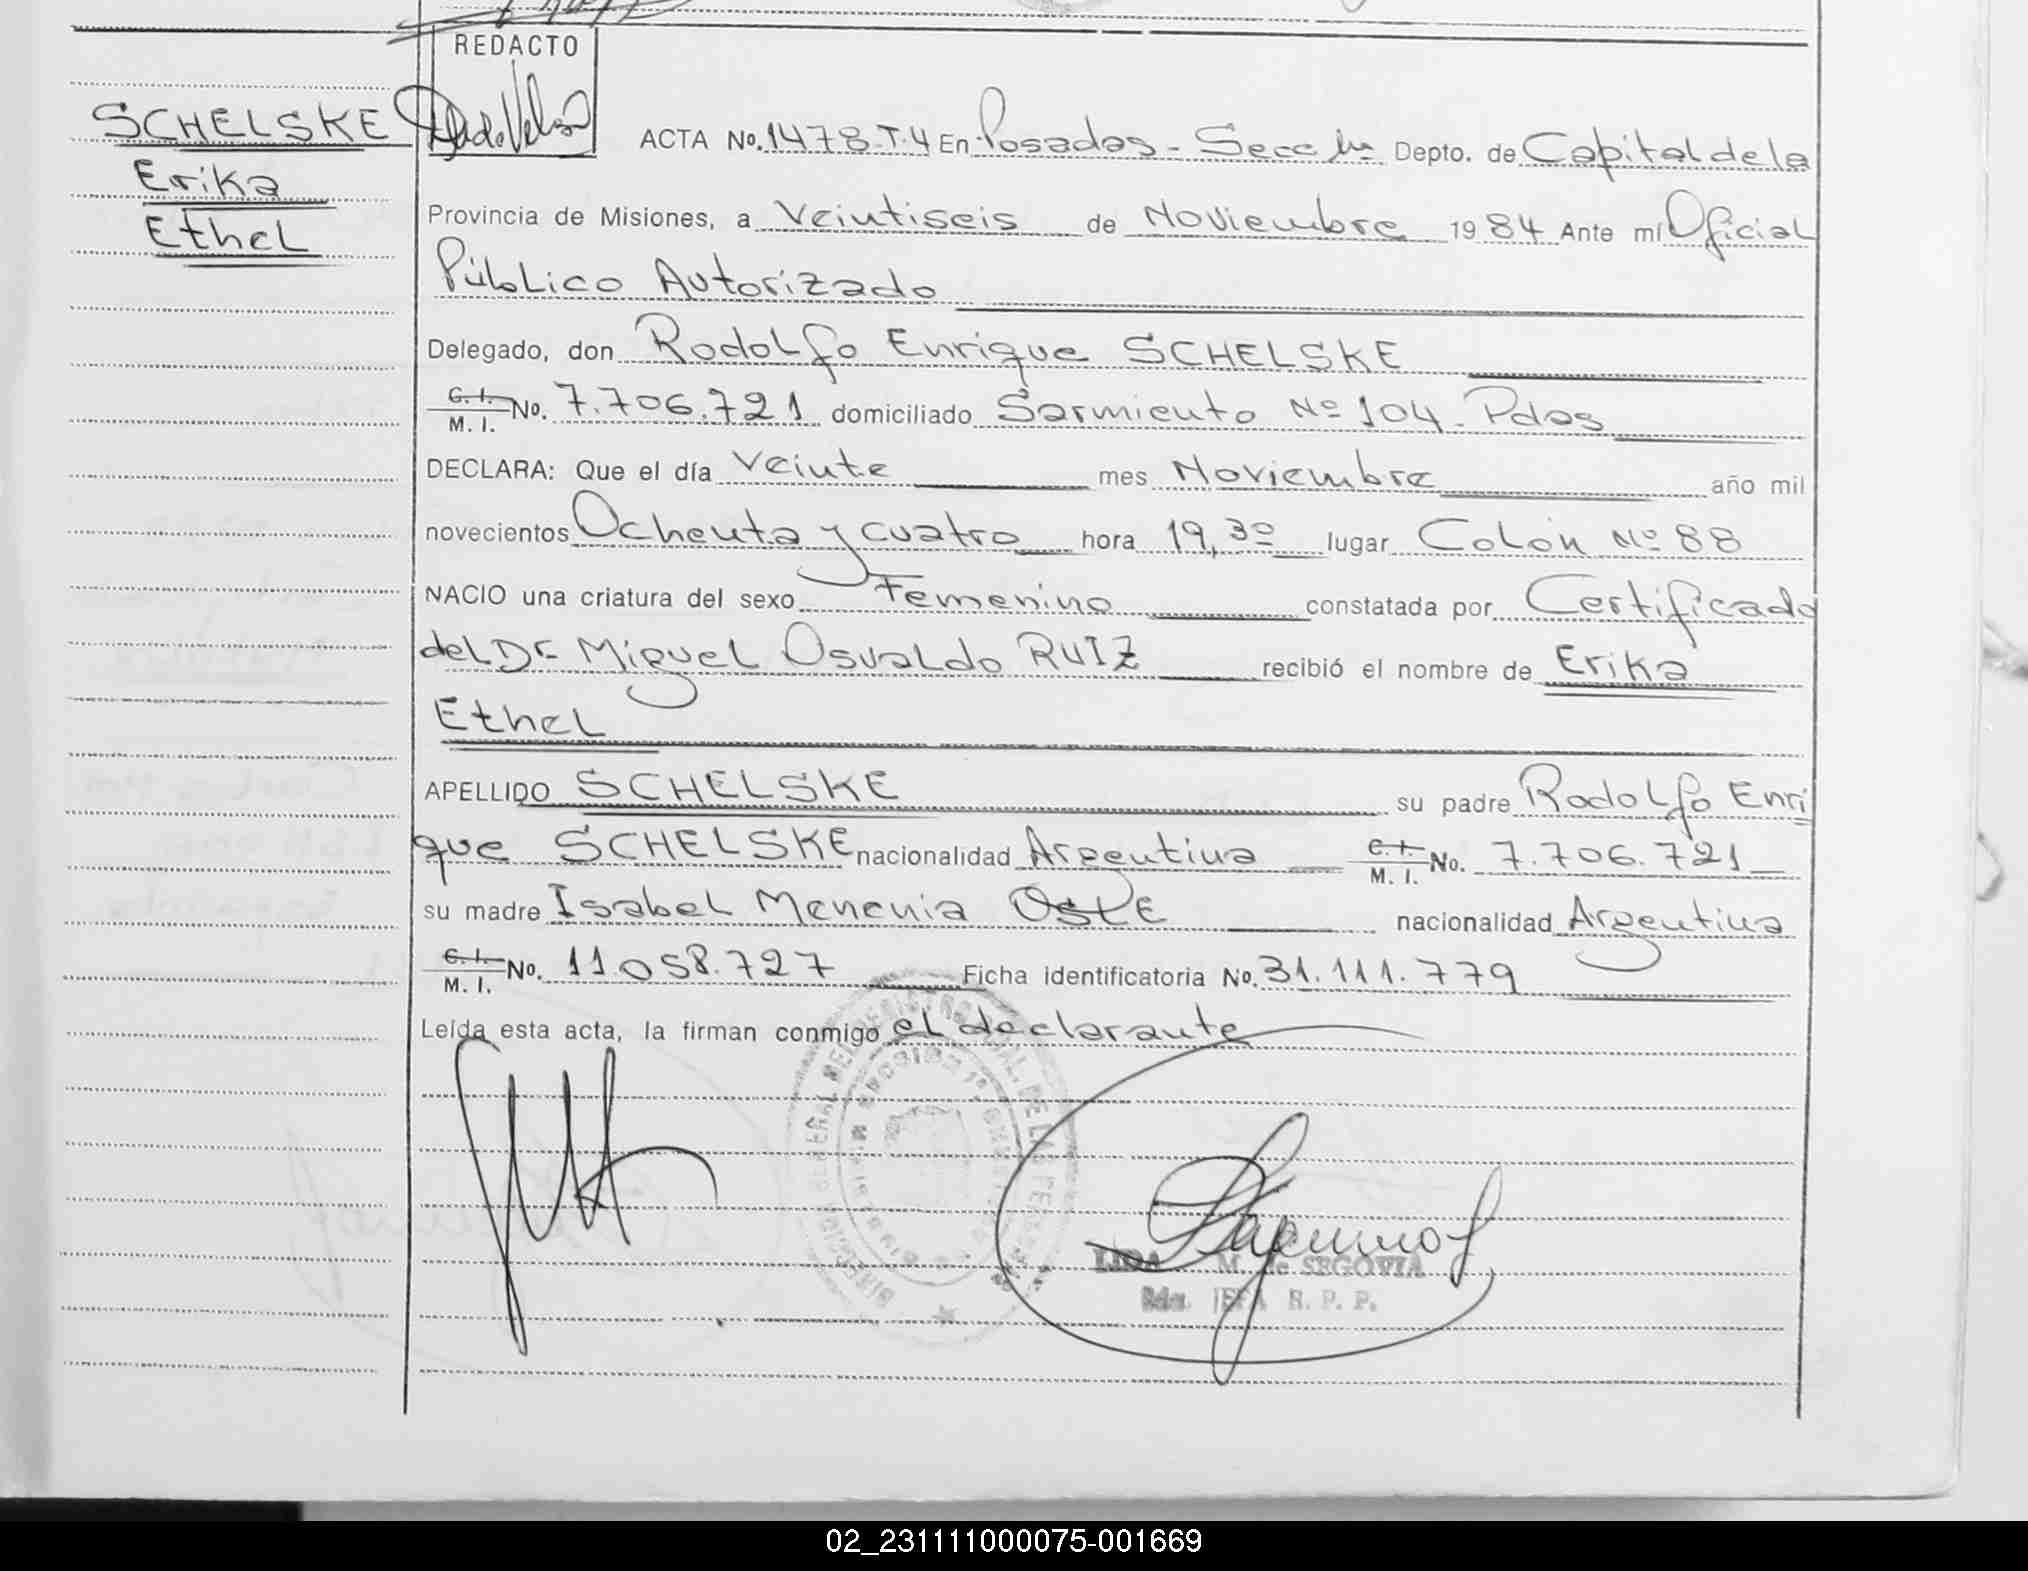 REDACTO
SCHELSKE
Erika
Ethel
ACTA No. 1478-T.4 En Posadas - Secc 1a Depto. de Capital de la
Provincia de Misiones, a Veintiseis de Noviembre 19 84 Ante mí Oficial
Público Autorizado
Delegado, don Rodolfo Enrique SCHELSKE
C. I. M. I. No. 7.706.721 domiciliado Sarmiento Nº 104 - Pdas
DECLARA: Que el día Veinte mes Noviembre año mil
novecientos Ochenta y cuatro hora 19,30 lugar Colón Nº 88
NACIO una criatura del sexo Femenino constatada por Certificado
del Dr Miguel Osvaldo RUIZ recibió el nombre de Erika
Ethel
APELLIDO SCHELSKE su padre Rodolfo Enri
que SCHELSKE nacionalidad Argentina C. I. M. I. No. 7.706.721
su madre Isabel Menenia OstE nacionalidad Argentina
C. I. M. I. No. 11.058.727 Ficha identificatoria No. 31.111.779
Leída esta acta, la firman conmigo el declarante
LIDA M. de SEGOVIA
JEFA R. P. P.
02_231111000075-001669